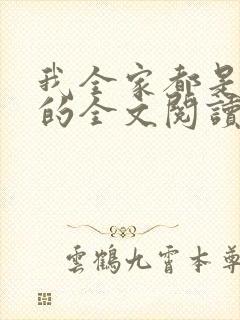 我全家都是
的全文閱讀
雲鶴九霄本尊